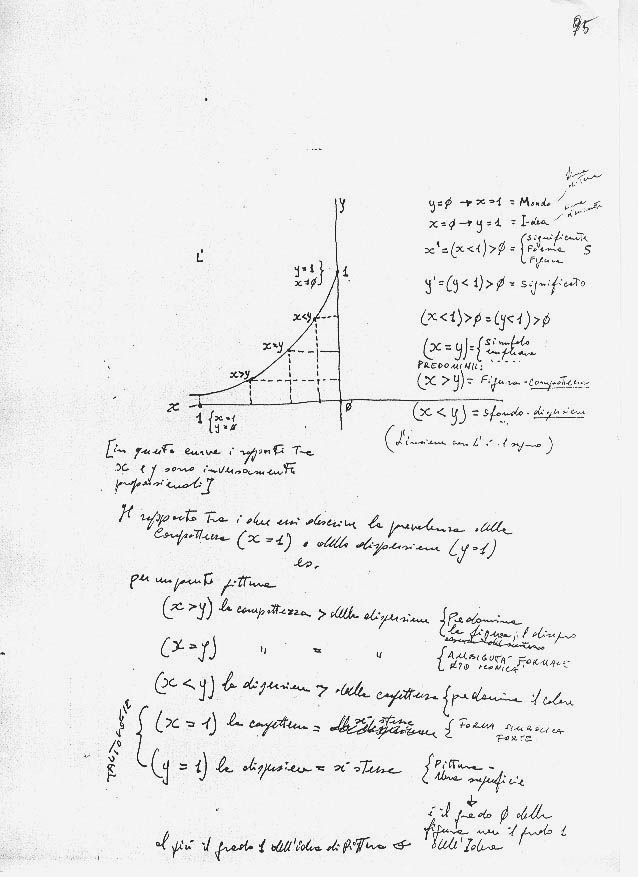 95
y
y=ø → x=1 = Mondo
x=ø → y=1 = Idea
x'=(x<1)>ø = { Significante Forma Figura S
L'
y=1 x=ø } 1
y'=(y<1)>ø = significato
x<y
(x<1)>ø=(y<1)>ø
x=y
(x=y)={ simbolo
PREDOMINII:
x>y
(x>y) = Figura - compattezza
x
ø
(x<y) = sfondo - dispersione
1 { x=1 y=ø
[in questa curva i rapporti tra
x e y sono inversamente
proporzionali]
Il rapporto tra i due assi descrive la prevalenza della
compattezza (x=1) o della dispersione (y=1)
es.
per un punto pittura
(x>y) la compattezza > della dispersione { Predomina
la figura, il disegno
(x=y) " = " { AMBIGUTA' FORMALE
ICONICA
(x<y) la dispersione > della compattezza { predomina il colore
TAUTOLOGIE
(x=1) la compattezza = a se stessa { FORMA SIMBOLICA
FORTE
(y=1) la dispersione = a se stessa { Pittura =
superficie
è il grado ø della
figura non il grado 1
dell'Idea
al più il grado 1 dell'idea di Pittura